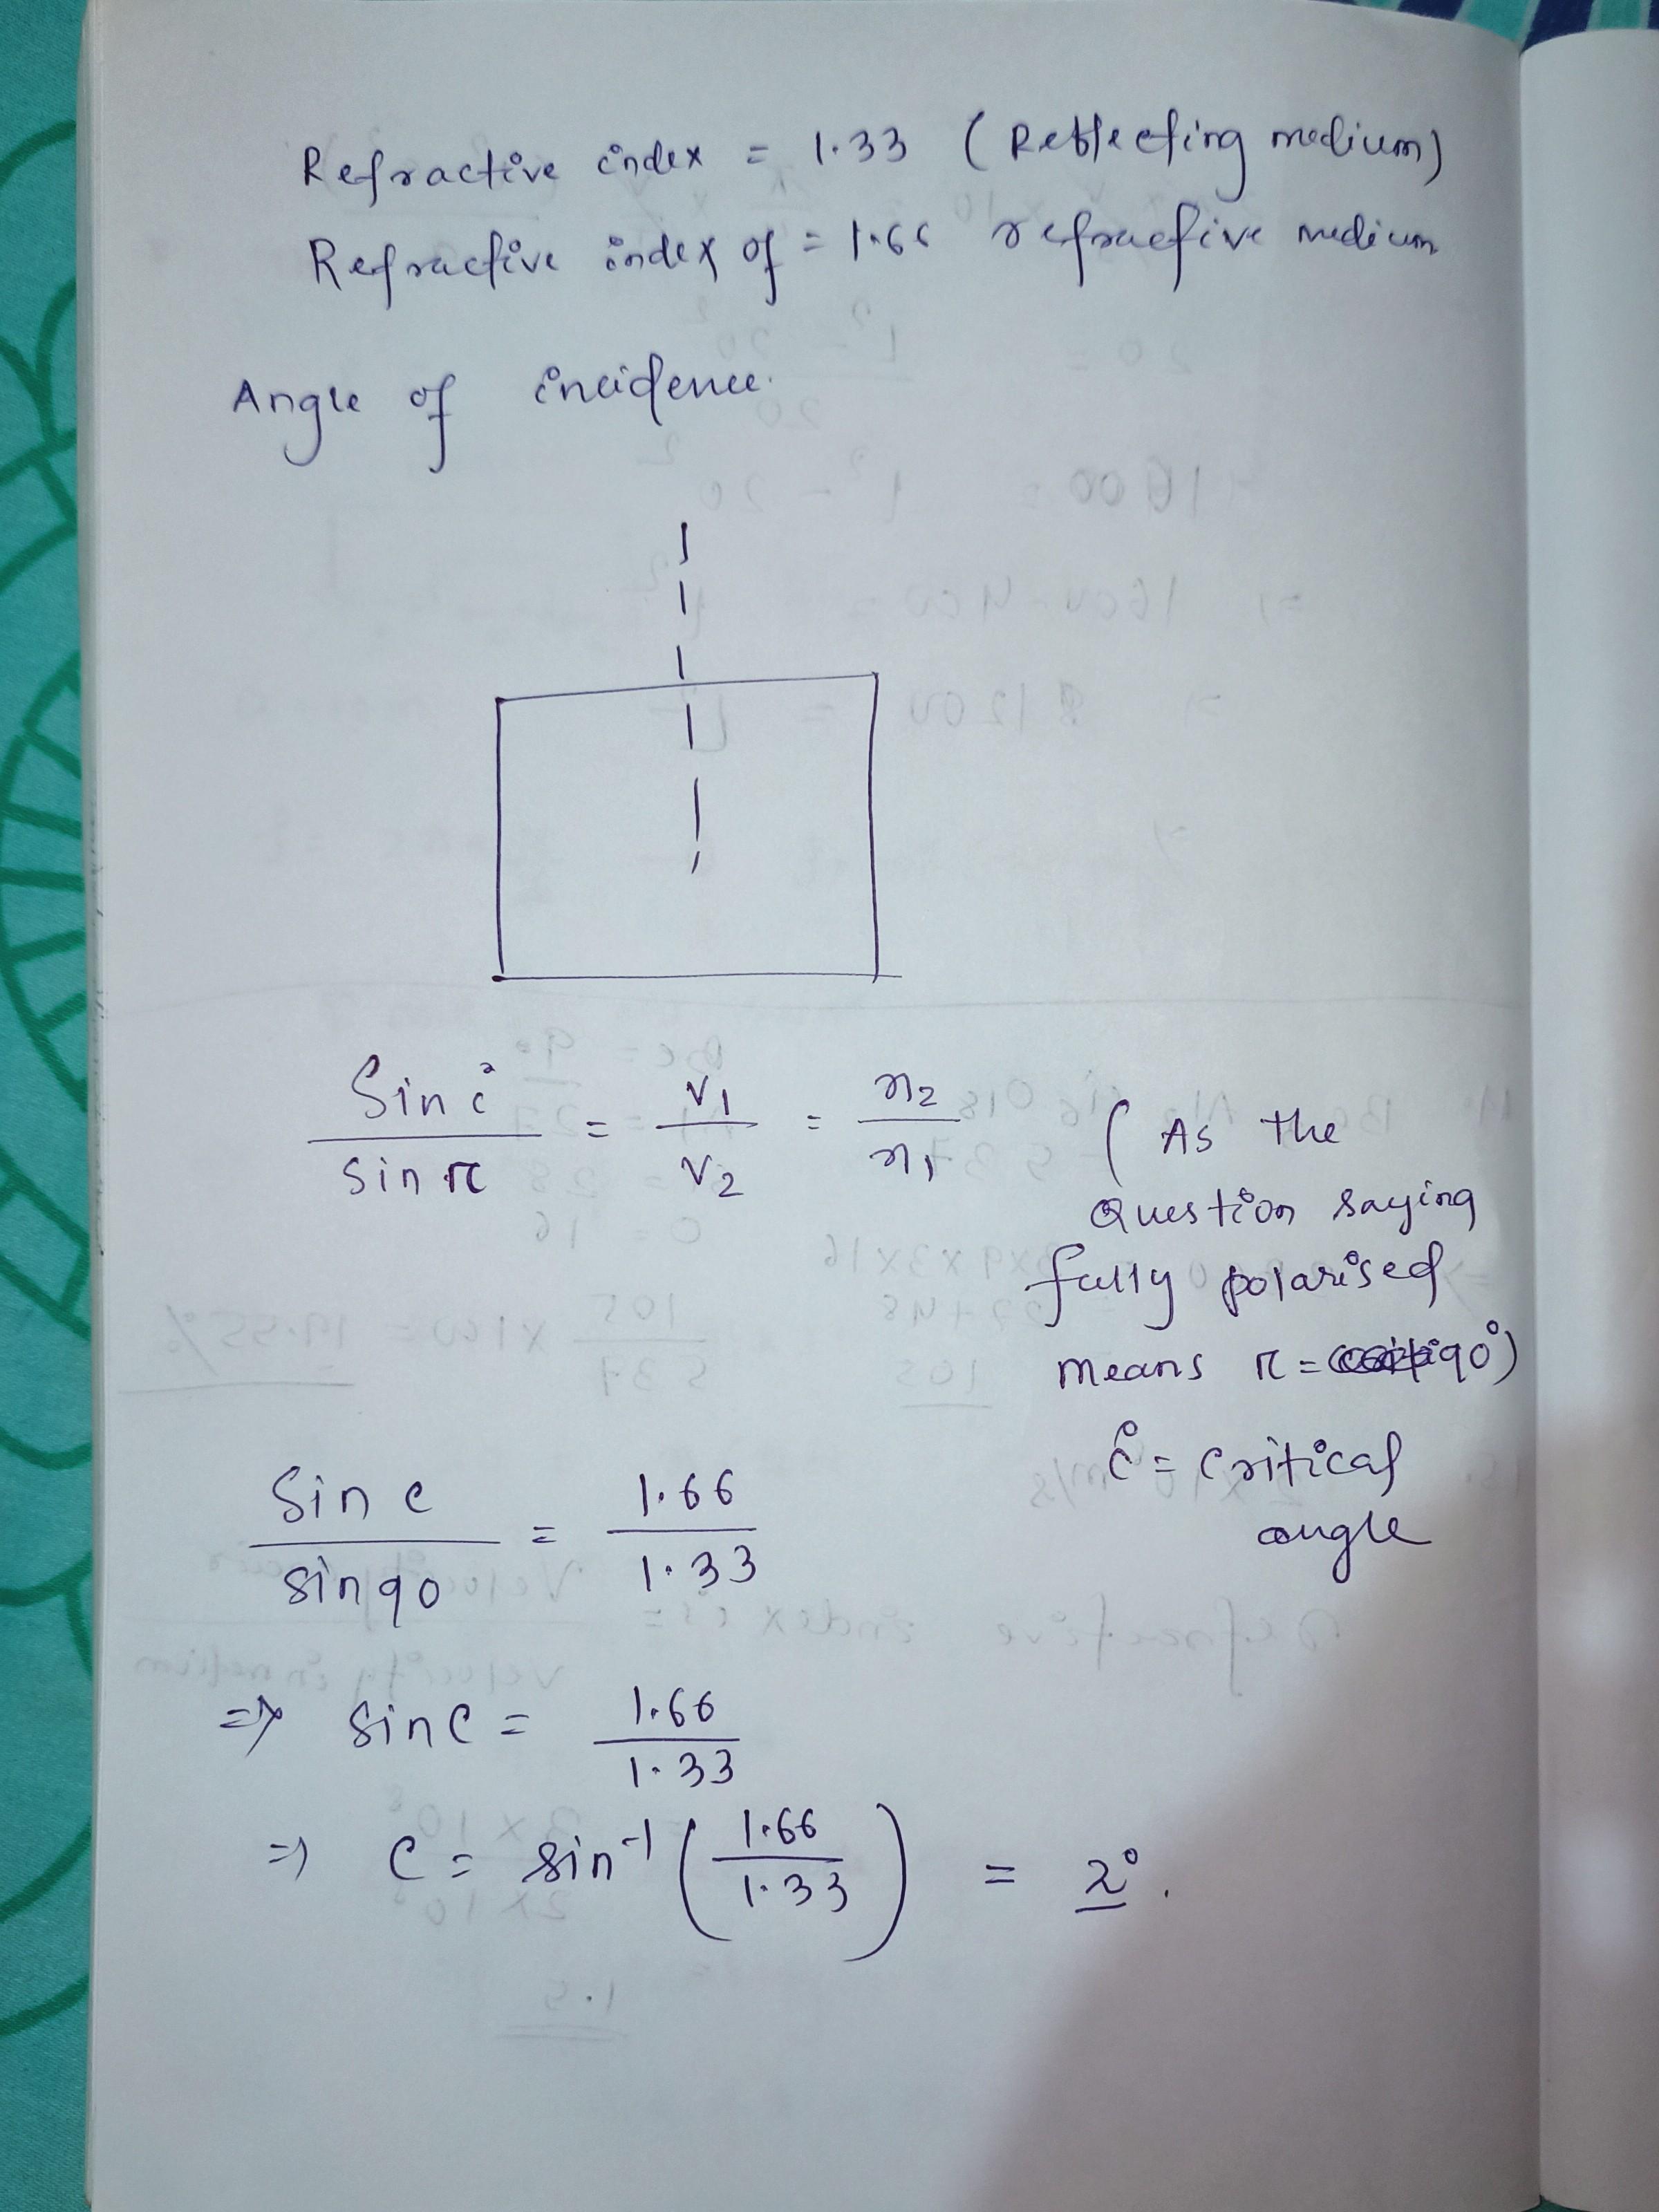 Refractive index = 1.33 (Reflecting medium)
Refractive index of = 1.66 refractive medium
Angle of incidence.
Sin i / sin r = v1 / v2 = n2 / n1 (As the
Question saying
fully polarised
means r = 90°)
i = critical
angle
Sin c / sin 90 = 1.66 / 1.33
=> sin c = 1.66 / 1.33
=> c = sin^-1 (1.66 / 1.33) = 2°.